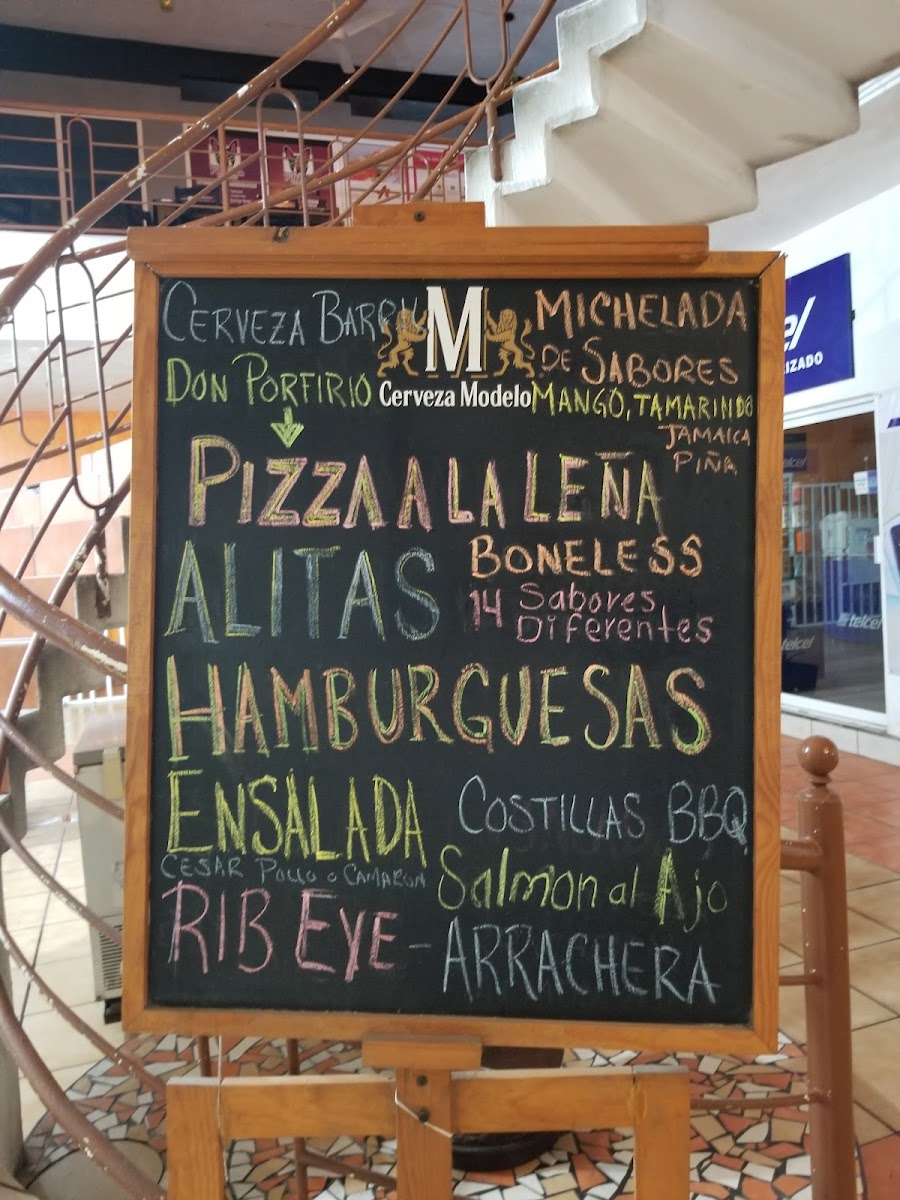 CERVEZA
DON PORFIRIO
M
Cerveza Modelo
MICHELADA
DE SABORES
MANGO, TAMARINDO
JAMAICA
PIÑA
PIZZA A LA LEÑA
ALITAS
BONELESS
14 Sabores
Diferentes
HAMBURGUESAS
ENSALADA
CESAR POLLO O CAMARON
COSTILLAS BBQ
Salmon al Ajo
RIB EYE - ARRACHERA
telcel
telcel
telcel